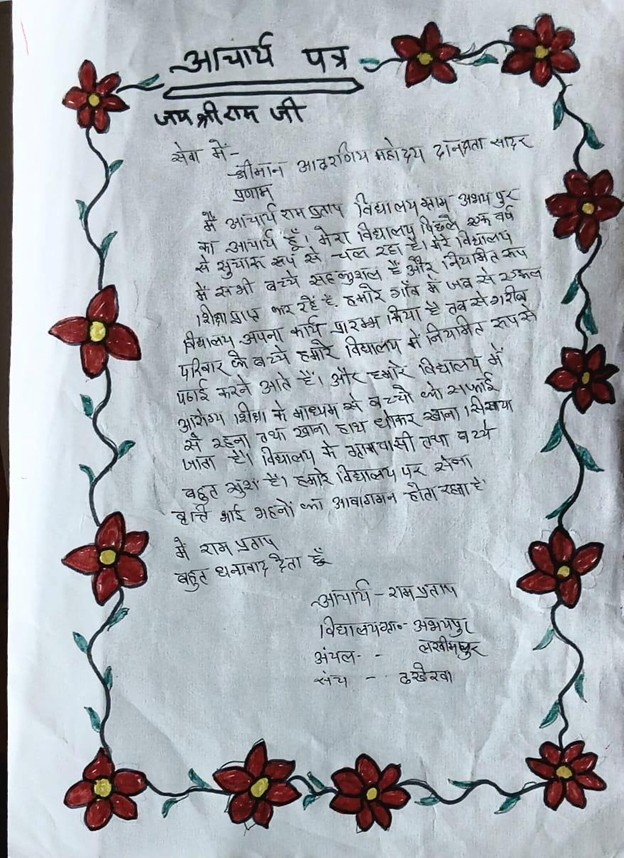 आचार्य पत्र
जय श्री राम जी
सेवा में -
श्रीमान आदरणिय महोदय दानदाता सादर
प्रणाम
मैं आचार्य राम प्रताप विद्यालय ग्राम अभय पुर
का आचार्य हूँ। मेरा विद्यालय पिछले एक वर्ष
से सुचारू रूप से चल रहा है। मेरे विद्यालय
में सभी बच्चे सहकुशल हैं और नियमित रूप
शिक्षा प्राप्त कर रहें हैं हमारे गाँव में जब से एकल
विद्यालय अपना कार्य प्रारम्भ किया है तब से गरीब
परिवार के बच्चे हमारे विद्यालय में नियमित रूप से
पढाई करने आते हैं। और हमारे विद्यालय में
आरोग्य शिक्षा के माध्यम से बच्चों को सफाई
से रहना तथा खाना हाथ धोकर खाना सिखाया
जाता है। विद्यालय के ग्रामवासी तथा बच्चे
बहुत खुश है। हमारे विद्यालय पर सेवा
व्रत्ति भाई बहनों का आवागमन होता रहता है
मै राम प्रताप
बहुत धन्यवाद देता हूँ
आचार्य - राम प्रताप
विद्यालय ग्राम - अभयपुर
अंचल - - लखीमपुर
संच - ढखेरवा